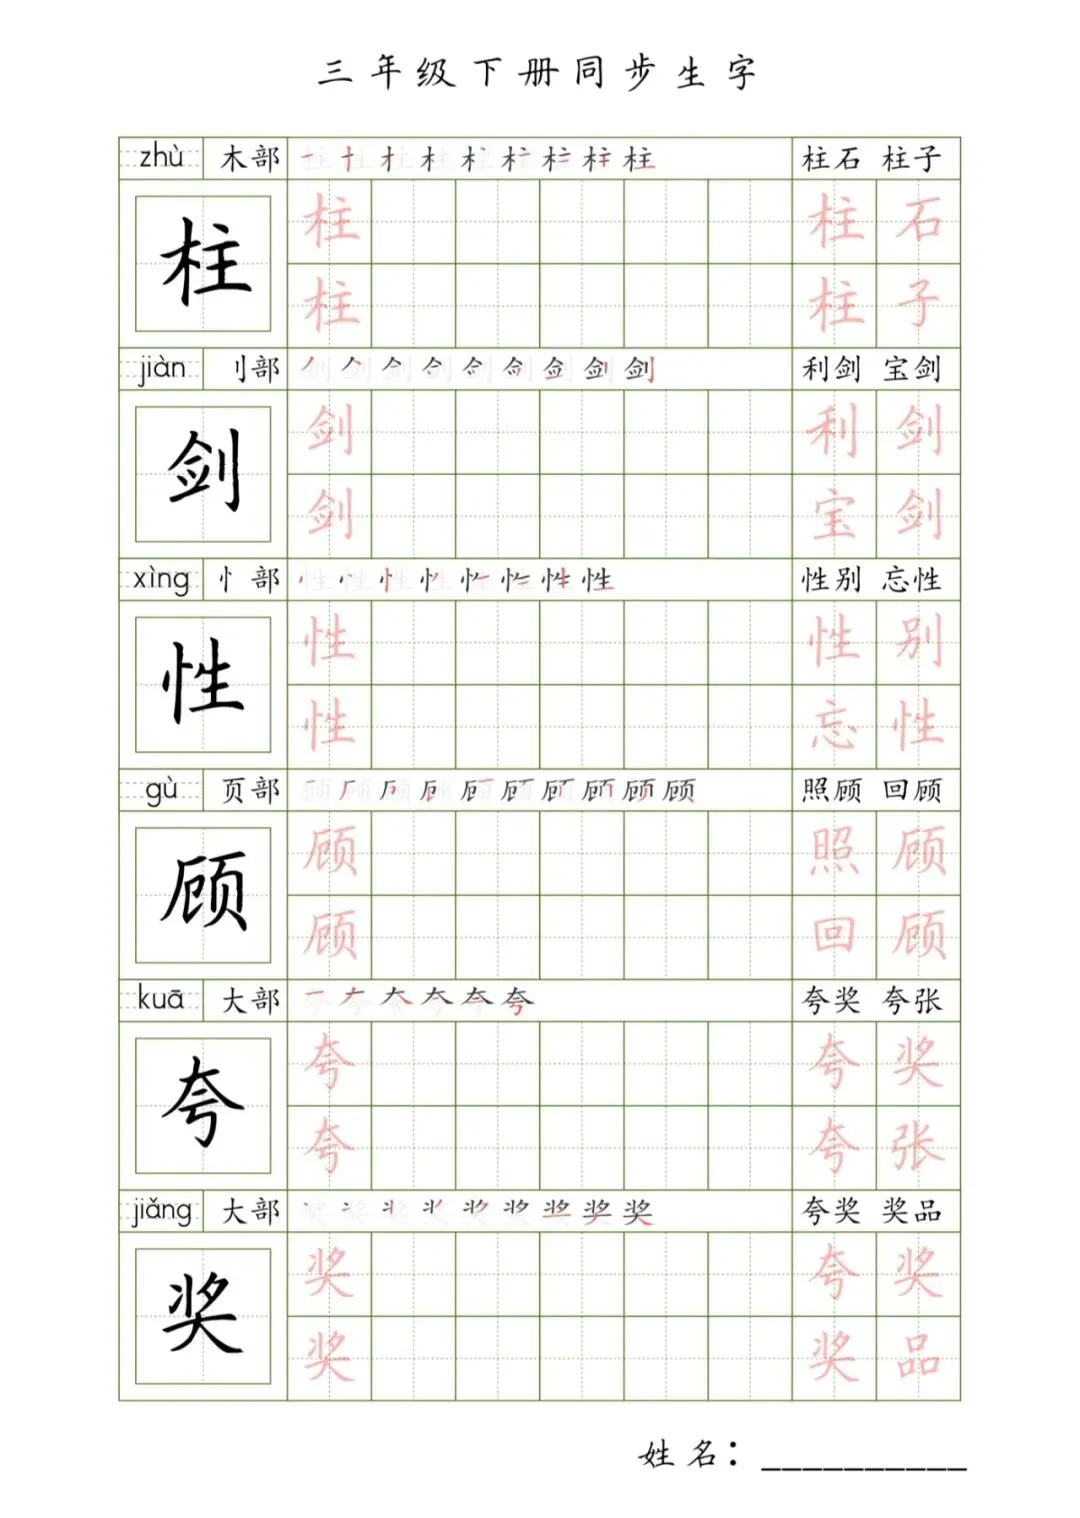 三年级下册同步生字
zhù 木部 柱石 柱子
柱 柱 柱石
柱 柱子
jiàn 刂部 利剑 宝剑
剑 剑 利剑
剑 宝剑
xìng 忄部 性别 忘性
性 性 性别
性 忘性
gù 页部 照顾 回顾
顾 顾 照顾
顾 回顾
kuā 大部 夸奖 夸张
夸 夸 夸奖
夸 夸张
jiǎng 大部 夸奖 奖品
奖 奖 夸奖
奖 奖品
姓名：__________